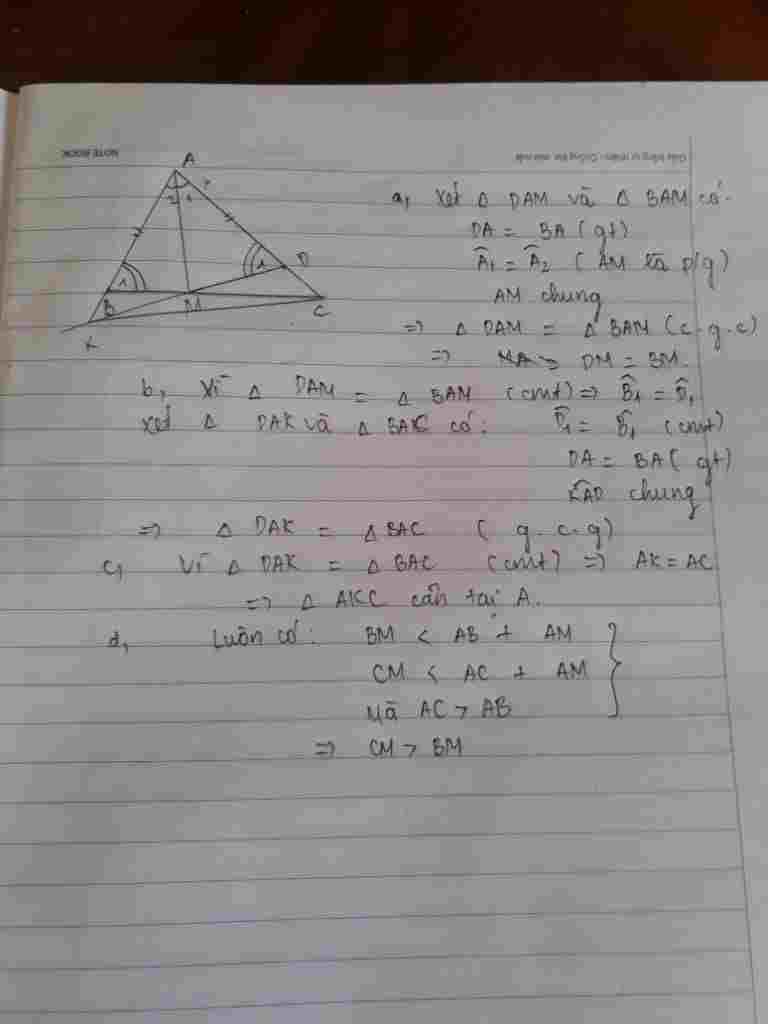 NOTE BOOK
A
2 1
1
1
D
B
M
C
K
a, Xét Δ DAM và Δ BAM có
DA = BA (gt)
Â1 = Â2 ( AM là p/g)
AM chung
=> Δ DAM = Δ BAM (c.g.c)
=> DM = BM.
b, Vì Δ DAM = Δ BAM (cmt) => B̂1 = D̂1
xét Δ DAK và Δ BAC có: D̂1 = B̂1 (cmt)
DA = BA ( gt)
KAD chung
=> Δ DAK = Δ BAC ( g.c.g)
c, Vì Δ DAK = Δ BAC (cmt) => AK = AC
=> Δ AKC cân tại A.
d, Luôn có: BM < AB + AM
CM < AC + AM
Mà AC > AB
=> CM > BM